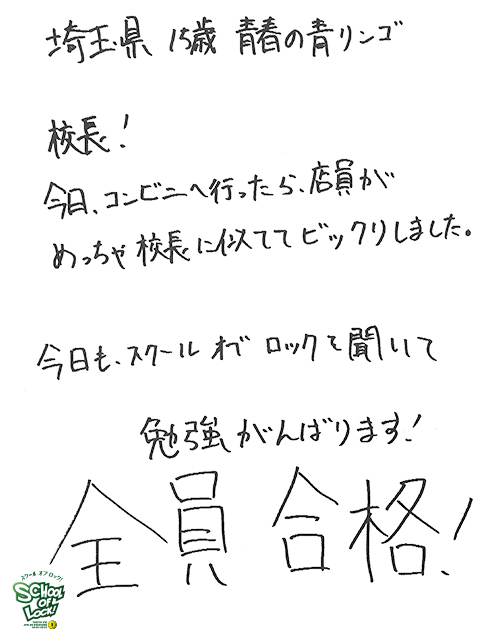 埼玉県 15歳 青春の青リンゴ
校長!
今日、コンビニへ行ったら、店員が
めっちゃ校長に似ててビックリしました。
今日も、スクール オブ ロックを聞いて
勉強がんばります!
全員 合格!
スクール オブ ロック!
SCHOOL
OF
LOCK!